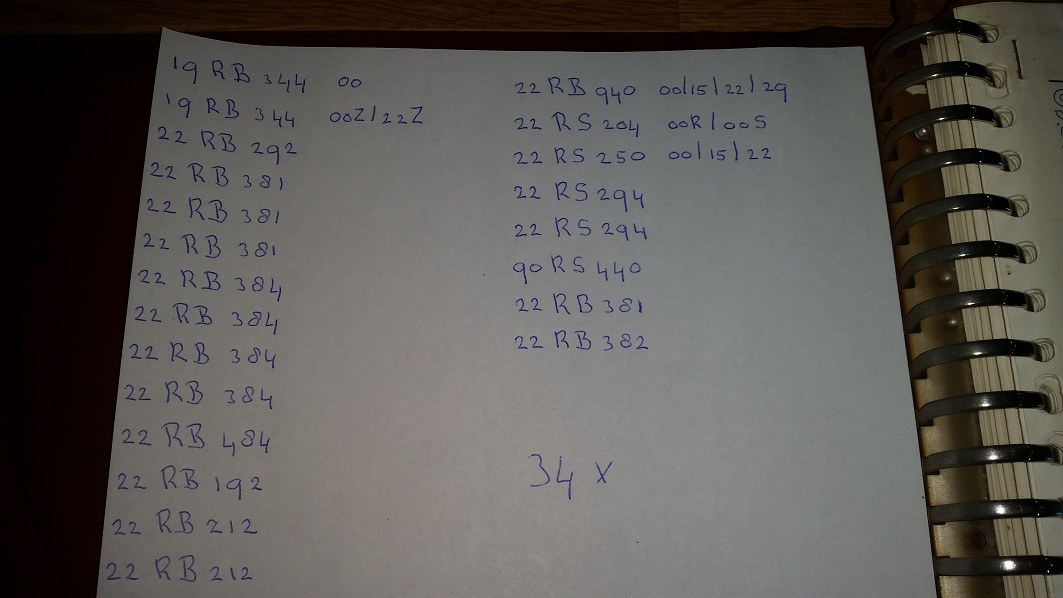 19 RB 344 00
19 RB 344 00Z/22Z
22 RB 292
22 RB 381
22 RB 381
22 RB 381
22 RB 384
22 RB 384
22 RB 384
22 RB 384
22 RB 484
22 RB 192
22 RB 212
22 RB 212
22 RB 940 00/15/22/29
22 RS 204 00R/00S
22 RS 250 00/15/22
22 RS 294
22 RS 294
90 RS 440
22 RB 381
22 RB 382
34 x